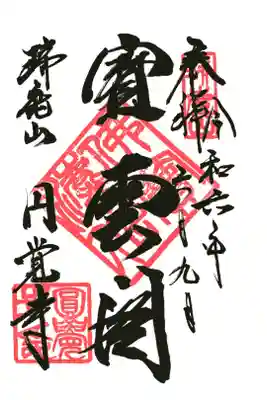 奉拝
令和六年
六月九日
寶雲閣
瑞鹿山
円覚寺